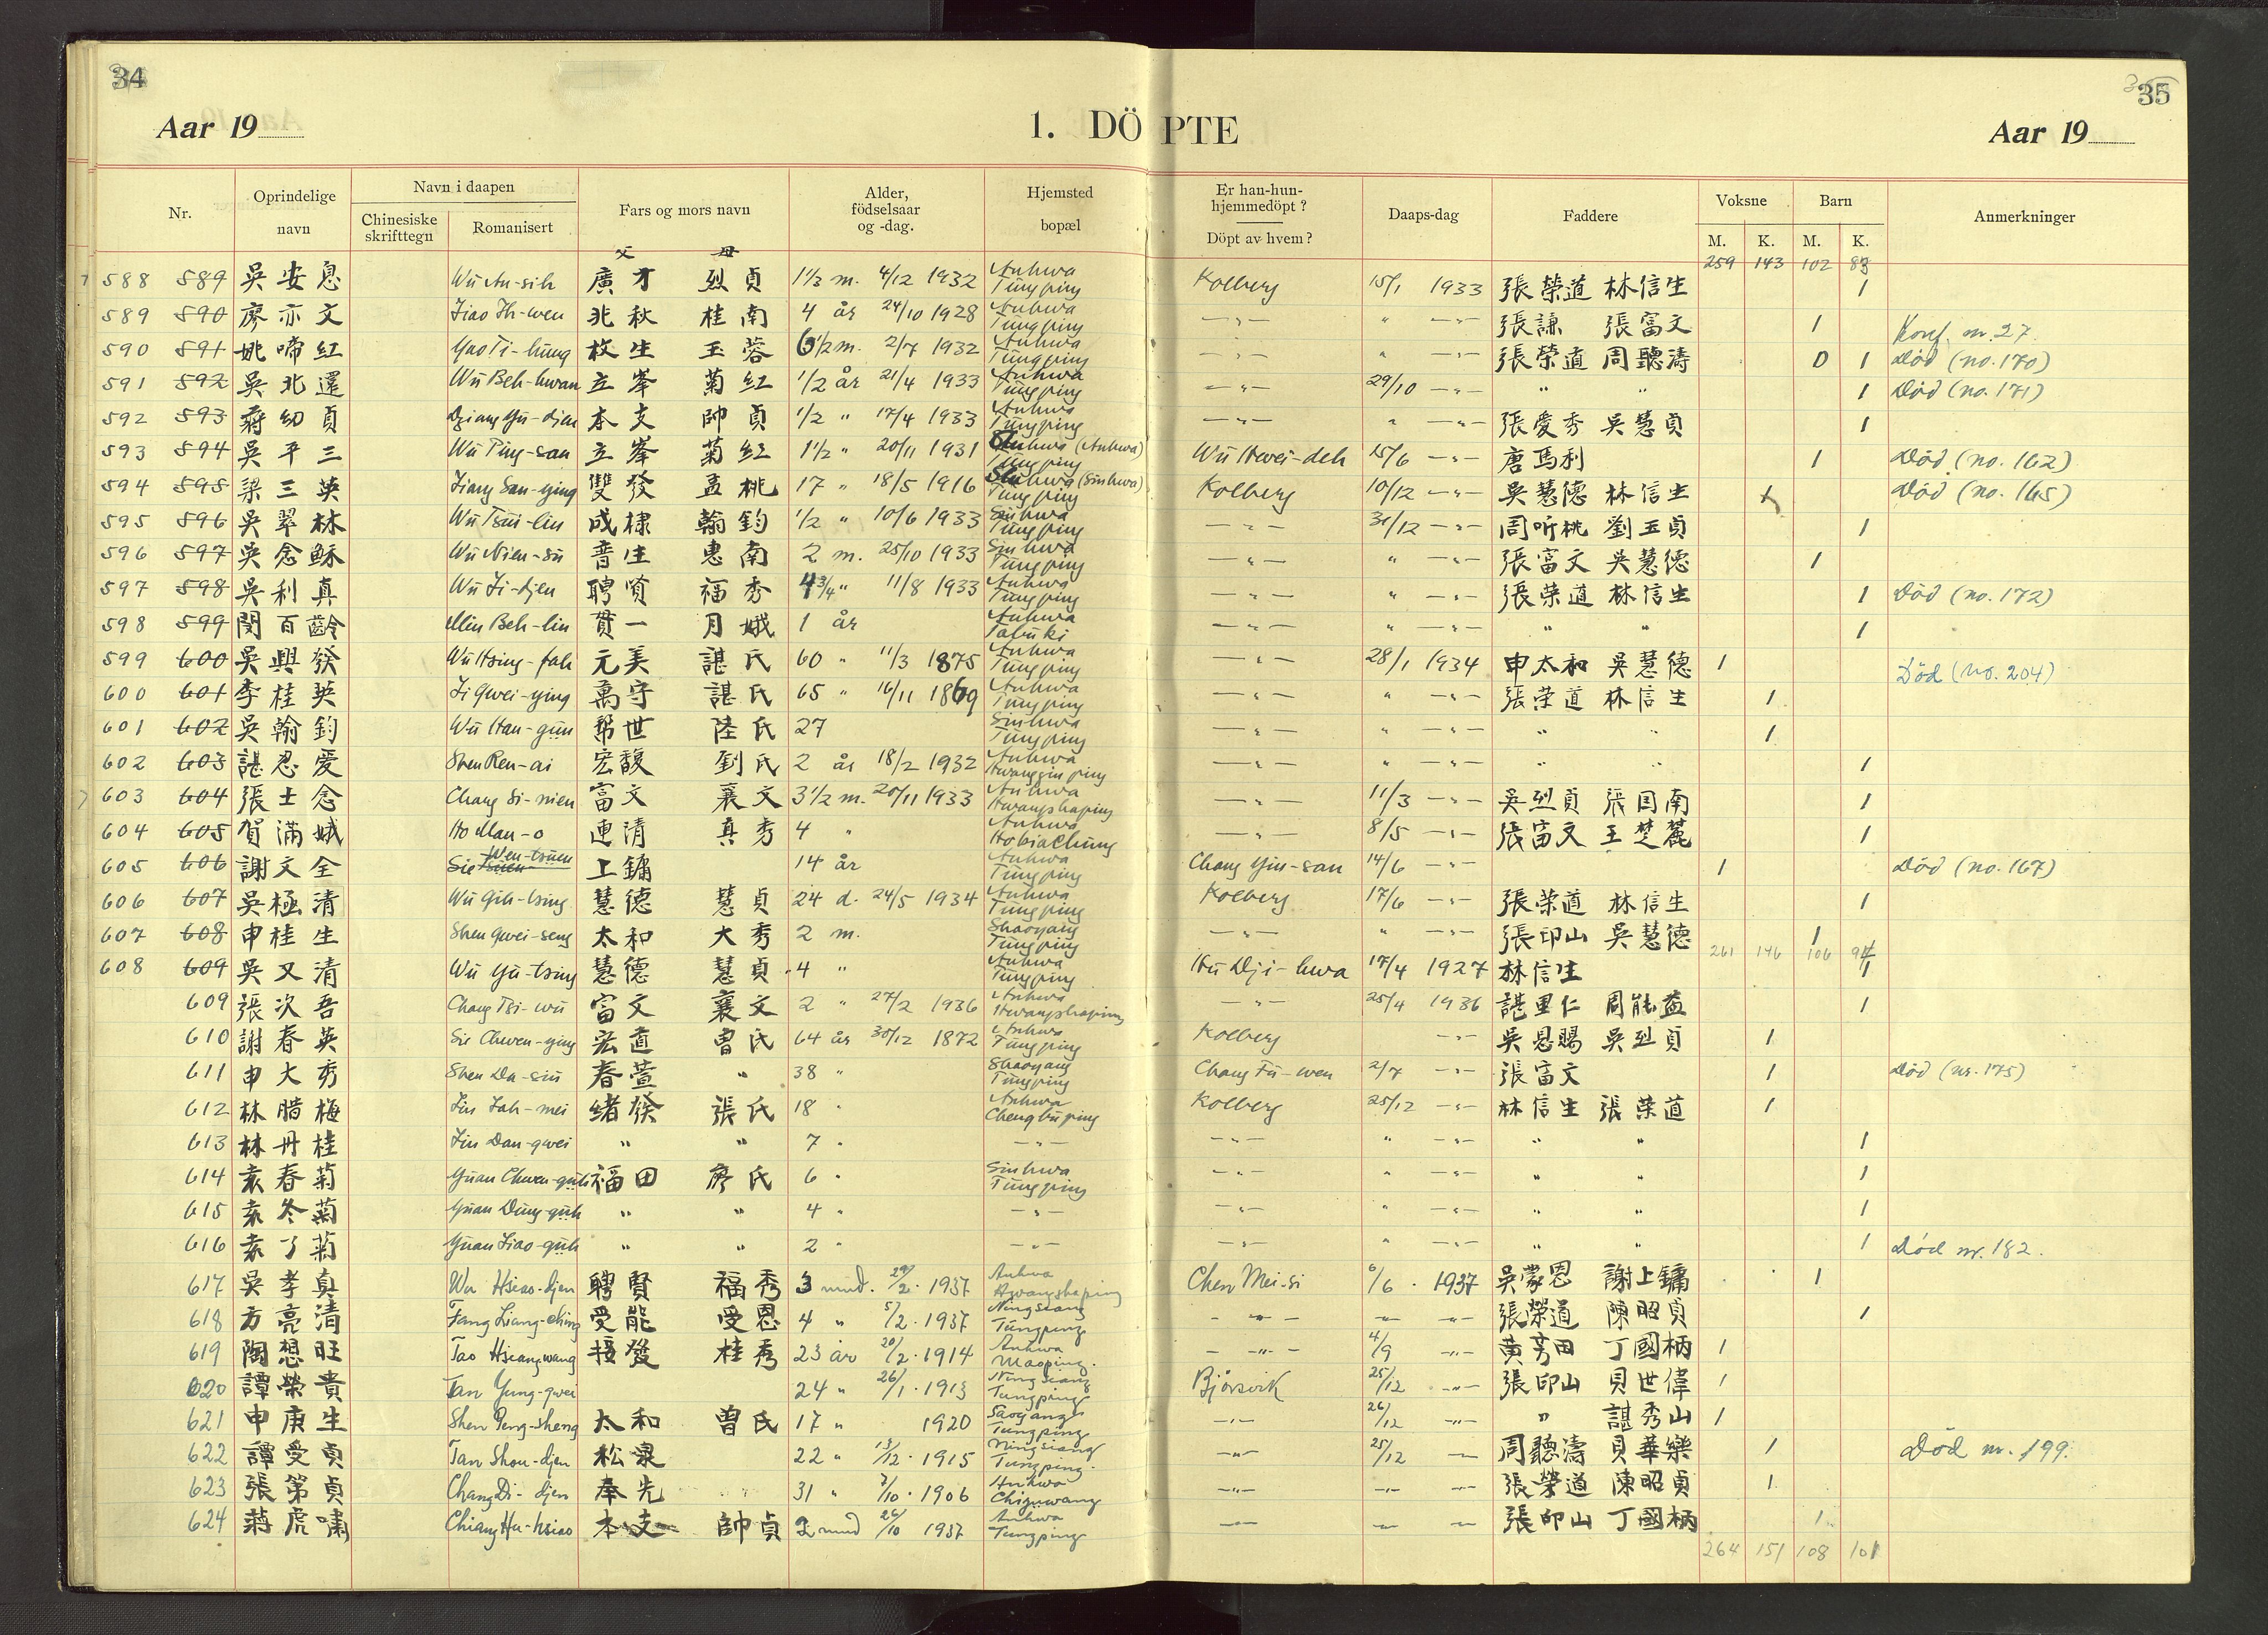 34
35
Aar 19
1. DÖPTE
Aar 19
Nr. Oprindelige navn Navn i daapen Chinesiske skrifttegn Romanisert Fars og mors navn Alder, födselsaar og -dag. Hjemsted bopæl Er han-hun-hjemmedöpt? Döpt av hvem? Daaps-dag Faddere Voksne M. K. Barn M. K. Anmerkninger
父 母
259 143 102 83
588 589 吳安息 Wu An-sih 廣才 烈貞 1 1/3 m. 4/12 1932 Anhwa Tungping Kolberg 15/1 1933 張榮道 林信生 1
589 590 廖亦文 Liao Ih-wen 兆秋 桂南 4 år 24/10 1928 Anhwa Tungping -"- " -"- 張謙 張富文 1 Konf. nr. 27.
590 591 姚啼紅 Yao Ti-hung 枚生 玉蓉 6 1/2 m. 2/7 1932 Anhwa Tungping -"- " -"- 張榮道 周聽濤 0 1 Död (no. 170)
591 592 吳北還 Wu Beh-hwan 立峯 菊红 1/2 år 21/4 1933 Anhwa Tungping -"- 29/10 -"- " " 1 Död (no. 171)
592 593 蔣幼貞 Dziang Yu-djen 本支 帥貞 1/2 " 17/4 1933 Anhwa Tungping -"- " -"- 張愛秀 吳慧貞 1
593 594 吳平三 Wu Ping-san 立峯 菊红 1 1/2 " 20/11 1931 (Anhwa) Tungping Wu Hwei-deh 15/6 -"- 唐馬利 1 Död (no. 162)
594 595 梁三英 Liang San-ying 雙發 孟桃 17 " 18/5 1916 (Sinhwa) Tungping Kolberg 10/12 -"- 吳慧德 林信生 x Död (no. 165)
595 596 吳翠林 Wu Tsui-lin 成棣 翰鈞 1/2 " 10/6 1933 Sinhwa Tungping -"- 31/12 -"- 周听桃 劉玉貞 1
596 597 吳念穌 Wu Nien-su 普生 惠南 2 m. 25/10 1933 Sinhwa Tungping -"- " -"- 張富文 吳慧德 1
597 598 吳利真 Wu Li-djen 聘賢 福秀 4 3/4 " 11/8 1933 Anhwa Tungping -"- " -"- 張榮道 林信生 1 Död (no. 172)
598 599 閔百齡 Min Beh-lin 貫一 月娥 1 år Anhwa -"- " -"- " " 1
599 600 吳興發 Wu Hsing-fah 元美 諶氏 60 " 11/3 1875 Anhwa Tungping -"- 28/1 1934 申太和 吳慧德 1 Död (no. 204)
600 601 李桂英 Li Gwei-ying 萬守 諶氏 65 " 16/11 1869 Anhwa Tungping -"- " -"- 張榮道 林信生 1
601 602 吳翰鈞 Wu Han-gün 幫世 陸氏 27 Sinhwa Tungping -"- " -"- " " 1
602 603 諶忍愛 Shen Ren-ai 宏馥 劉氏 2 år 18/2 1932 Anhwa -"- " -"- " " 1
603 604 張士念 Chang Si-nien 富文 襄文 3 1/2 m. 20/11 1933 Anhwa Hwangshaping -"- 11/3 -"- 吳烈貞 張国南 1
604 605 賀滿娥 Ho Man-o 連清 真秀 4 " Anhwa Hobiachung -"- 8/5 -"- 張富文 王楚麓 1
605 606 謝文全 Sie Wen-tsuen 上鏞 14 år Anhwa Tungping Chang Yin-san 14/6 -"- 1 Död (no. 167)
606 607 吳極清 Wu Gih-tsing 慧德 慧貞 24 d. 24/5 1934 Anhwa Tungping Kolberg 17/6 -"- 張榮道 林信生 1
607 608 申桂生 Shen Gwei-seng 太和 大秀 2 m. Shaoyang Tungping -"- " -"- 張印山 吳慧德 1
261 146 106 94
608 609 吳又清 Wu Yu-tsing 慧德 慧貞 4 " Anhwa Tungping Hu Dji-hwa 17/4 1927 林信生 1
609 張次吾 Chang Tsi-wu 富文 襄文 2 " 27/2 1936 Anhwa Hwangshaping -"- 25/4 1936 諶里仁 周能益 1
610 謝春英 Sie Chwen-ying 宏道 曾氏 64 år 30/12 1872 Anhwa Tungping Kolberg -"- 吳恩賜 吳烈貞 1
611 申大秀 Shen Da-siu 春萱 " 38 " Shaoyang Tungping Chang Fu-wen 2/7 -"- 張富文 1 Död (nr. 175)
612 林腊梅 Lin Lah-mei 緒發 張氏 18 " Anhwa Chengbuping Kolberg 25/12 -"- 林信生 張榮道 1
613 林丹桂 Lin Dan-gwei " " 7 " -"- -"- " -"- " " 1
614 袁春菊 Yuan Chwen-güh 福田 廖氏 6 " Sinhwa Tungping -"- " -"- " " 1
615 袁冬菊 Yuan Dung-güh " " 4 " -"- -"- " -"- " " 1
616 袁了菊 Yuan Liao-güh " " 2 " -"- -"- " -"- " " 1 Död nr. 182.
617 吳孝真 Wu Hsiao-djen 聘賢 福秀 3 mnd. 29/2. 1937 Anhwa Hwangshaping Chen Mei-si 6/6. 1937 吳蒙恩 謝上鏞 1
618 方亮清 Fang Liang-ching 受能 受恩 4 " 5/2. 1937 Ningsiang Tungping -"- -"- 張榮道 陳昭貞 1
619 陶想旺 Tao Hsiang-wang 接發 桂秀 23 år 20/2. 1914 Anhwa Maoping. -"- 4/9 -"- 黄芳田 丁國柄 1
620 譚榮貴 Tan Yung-gwei 24 " 26/1. 1913 Ningsiang Tungping Bjørsvik 25/12 -"- 張印山 貝世偉 1
621 申庚生 Shen Geng-sheng 太和 曾氏 17 " 1920 Saoyang Tungping -"- 26/12 -"- " 諶秀山 1
622 譚受貞 Tan Shou-djen 松泉 22 " 13/12. 1915 Ningsiang Tungping. -"- 25/12 -"- 周聽濤 貝華樂 1 Död nr. 199.
623 張第貞 Chang Di-djen 奉先 31 " 7/10. 1906 Anhwa Chiguwang -"- -"- 張榮道 陳昭貞 1
624 蔣虎嘯 Chiang Hu-hsiao 本支 帥貞 2 mnd 26/10 1937 Anhwa Tungping -"- -"- 張印山 丁國柄 1
264 151 108 101